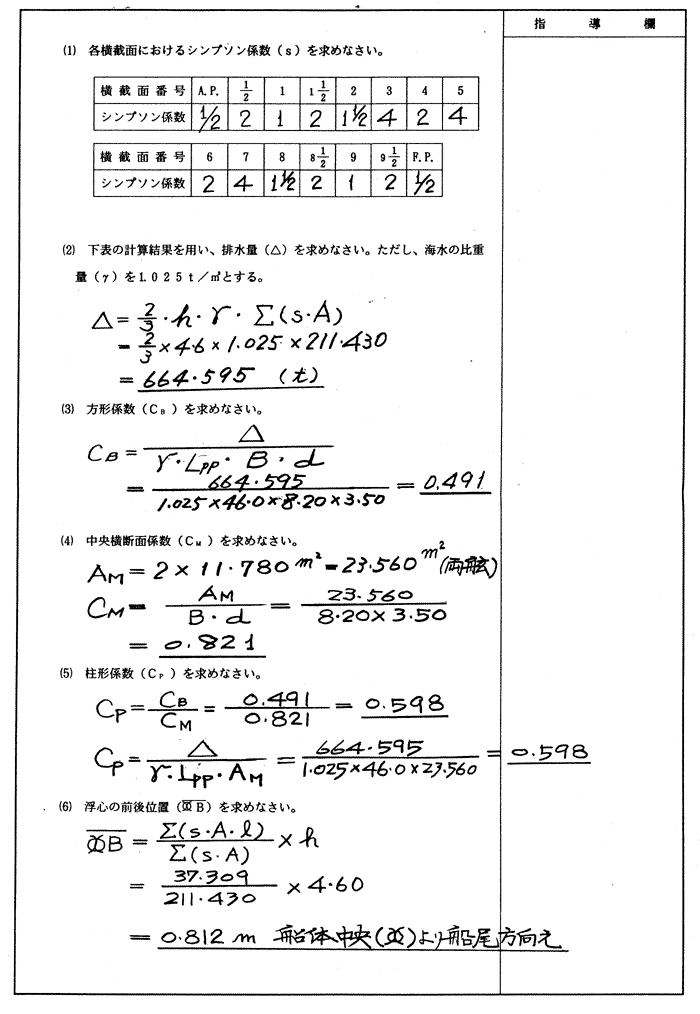 指 導 欄
(1) 各横截面におけるシンプソン係数(s)を求めなさい。
横 截 面 番 号 A.P. 1/2 1 1 1/2 2 3 4 5
シンプソン係数 1/2 2 1 2 1 1/2 4 2 4
横 截 面 番 号 6 7 8 8 1/2 9 9 1/2 F.P.
シンプソン係数 2 4 1 1/2 2 1 2 1/2
(2) 下表の計算結果を用い、排水量(△)を求めなさい。ただし、海水の比重
量(γ)を1.025t/㎥とする。
△ = 2/3・h・γ・Σ(s・A)
= 2/3 × 4.6 × 1.025 × 211.430
= 664.595 (t)
(3) 方形係数(CB)を求めなさい。
CB = △ / γ・Lpp・B・d
= 664.595 / 1.025×46.0×8.20×3.50 = 0.491
(4) 中央横断面係数(CM)を求めなさい。
AM = 2 × 11.780 m² = 23.560 m² (両舷)
CM = AM / B・d = 23.560 / 8.20×3.50
= 0.821
(5) 柱形係数(CP)を求めなさい。
CP = CB / CM = 0.491 / 0.821 = 0.598
CP = △ / γ・Lpp・AM = 664.595 / 1.025×46.0×23.560 = 0.598
(6) 浮心の前後位置(⦻B)を求めなさい。
⦻B = Σ(s・A・l) / Σ(s・A) × h
= 37.309 / 211.430 × 4.60
= 0.812 m 船体中央(⦻)より船尾方向え